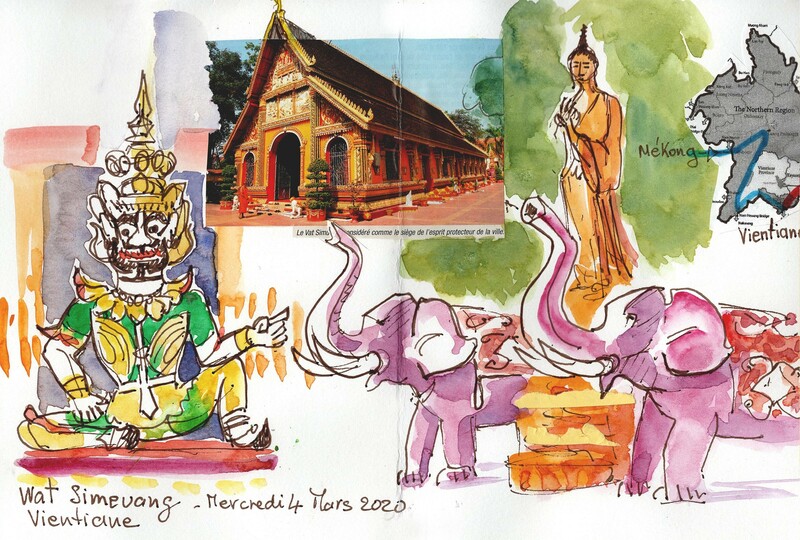 Le Vat Sim considéré comme le siège de l'esprit protecteur de la ville.
The Northern Region
Mékong
Vientiane
Province
Vientiane
Wat Simeuang - Mercredi 4 Mars 2020
Vientiane